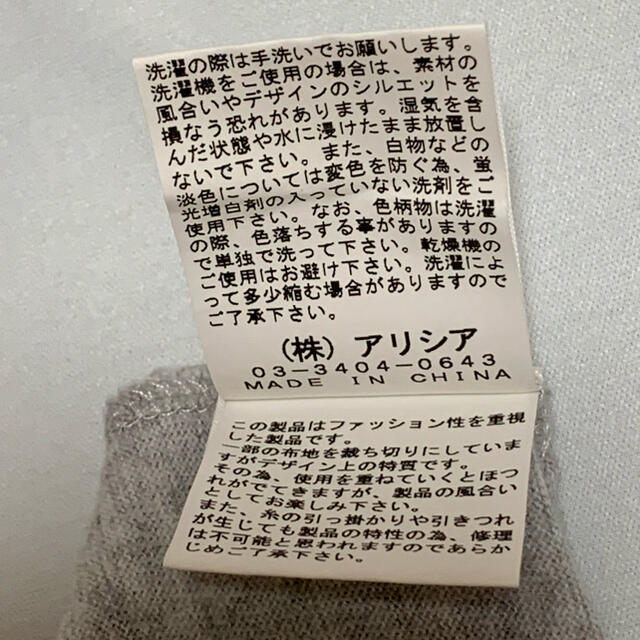 洗濯の際は手洗いでお願いします。
洗濯機をご使用の場合は、素材の
風合いやデザインのシルエットを
損なう恐れがあります。湿気を含
んだ状態や水に浸けたまま放置し
ないで下さい。また、白物などの
淡色については変色を防ぐ為、蛍
光増白剤の入っていない洗剤をご
使用下さい。なお、色柄物は洗濯
の際、色落ちする事がありますの
で単独で洗って下さい。乾燥機の
ご使用はお避け下さい。洗濯によ
って多少縮む場合がありますので
ご了承下さい。
(株)アリシア
03-3404-0643
MADE IN CHINA
この製品はファッション性を重視
した製品です。
一部の布地を裁ち切りにしていま
すがデザイン上の特質です。
その為、使用を重ねていくとほつ
れがでてきますが、製品の風合い
としてお楽しみ下さい。
また、糸の引っ掛かりや引きつれ
が生じても製品の特性の為、修理
は不可能と思われますのであらか
じめご了承下さい。